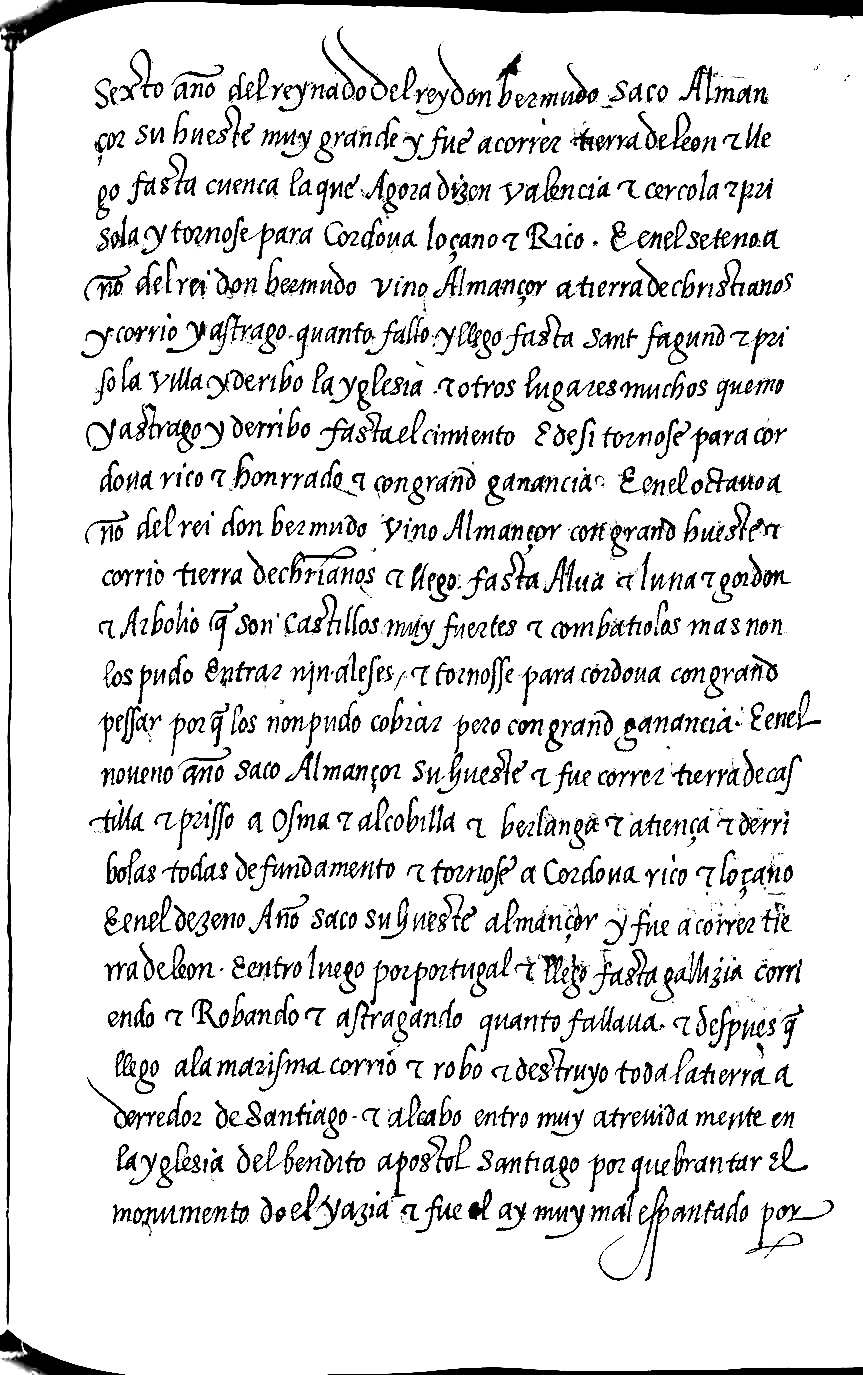 Sexto año del reynado del rey don bermudo saco Alman
çor su hueste muy grande y fue a correr tierra de leon τ lle
go fasta cuenca la que Agora dizen valencia τ cercola τ pri
sola y tornose para Cordova loçano τ Rico. E en el seteno a
ño del rei don bermudo vino Almançor a tierra de christianos
y corrio y astrago quanto fallo y llego fasta sant fagund τ pri
so la villa y deribo la yglesia τ otros lugares muchos quemo
y astrago y derribo fasta el cimiento E desi tornose para cor
dova rico τ honrrado τ con grand ganancia E en el octauo a
ño del rei don bermudo vino Almançor con grand hueste τ
corrio tierra de chrianos τ llego fasta Alua τ luna τ gordon
τ Arbolio q̃ son Castillos muy fuertes τ combatiolos mas non
los pudo Entrar nin aleses, τ tornosse para cordova con grand
pessar porq̃ los non pudo cobrar pero con grand ganancia. E en el
noveno año saco Almançor su hueste τ fue correr tierra de cas
tilla τ prisso a Osma τ alcobilla τ berlanga τ atiença τ derri
bolas todas de fundamento τ tornose a Cordova rico τ loçano
E en el dezeno Año saco su hueste almançor y fue a correr tie
rra de leon. E entro luego por portugal τ llego fasta gallizia corri
endo τ Robando τ astragando quanto fallaua. τ despues q̃
llego a la marisma corrio τ robo τ destruyo toda la tierra a
derredor de Santiago. τ al cabo entro muy atreuida mente en
la yglesia del bendito apostol Santiago por quebrantar El
monumento do el yazia τ fue el ay muy mal espantado por